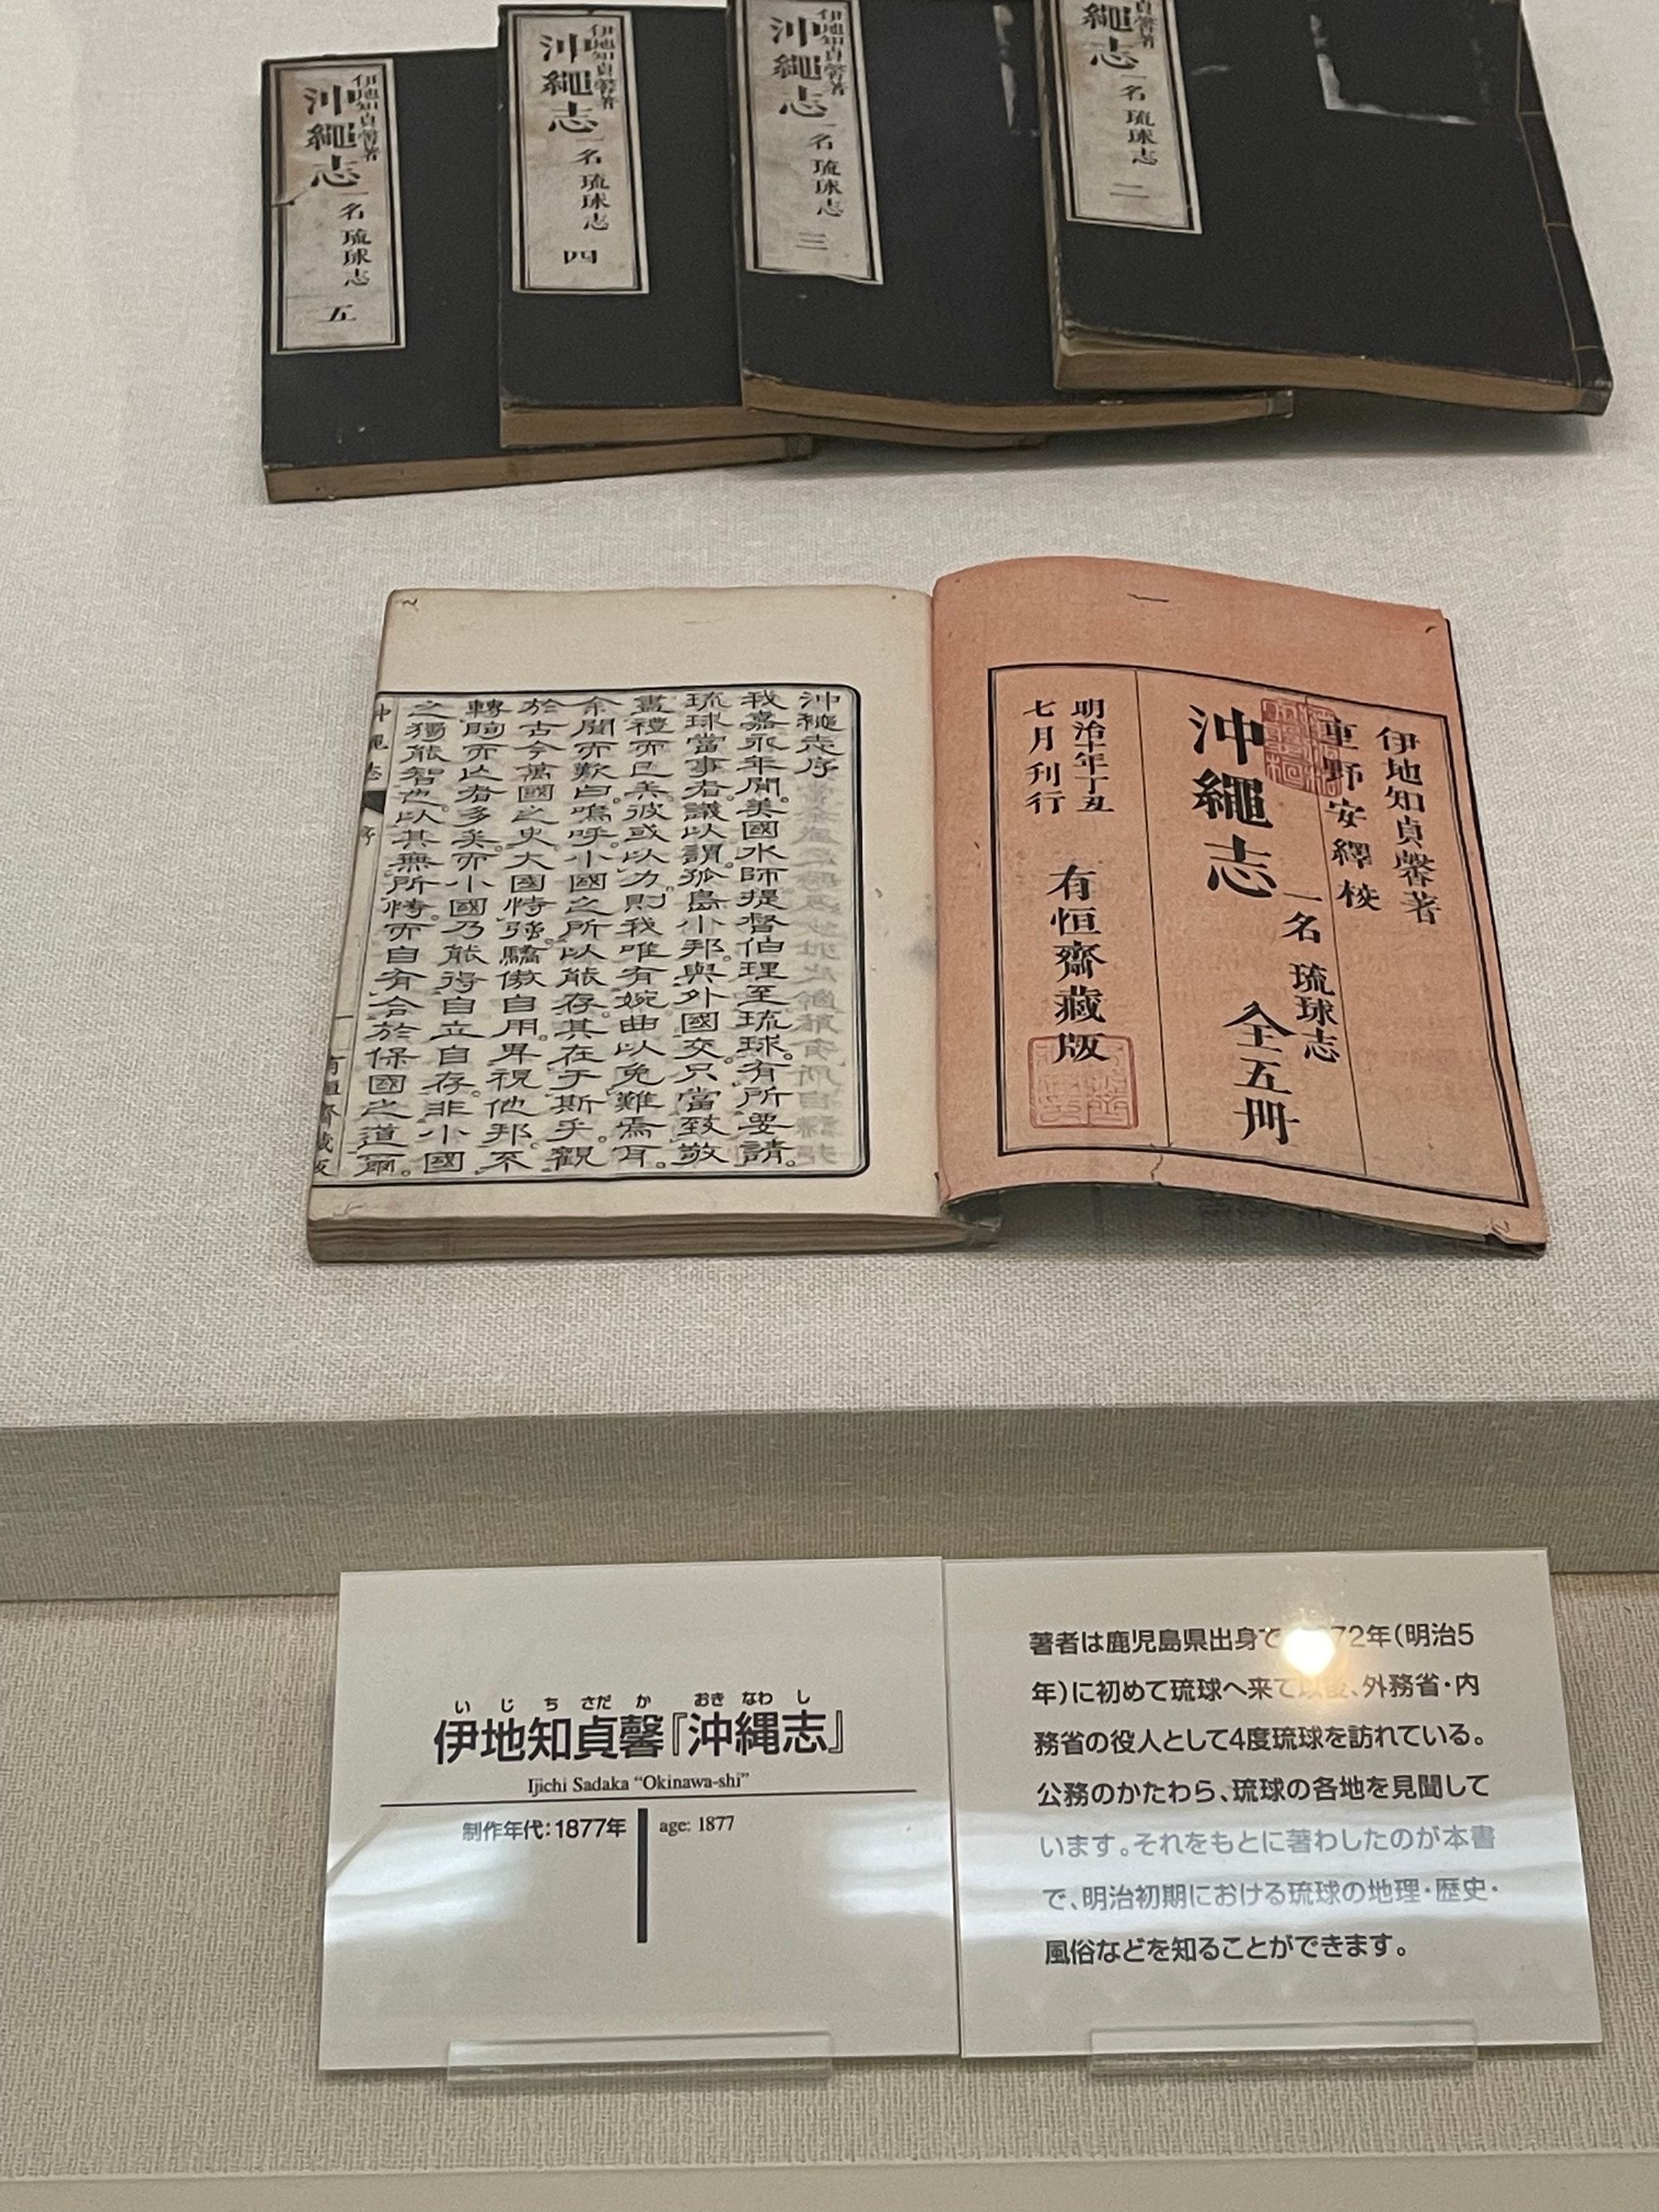 伊地知貞馨著
沖繩志
一名琉球志
五
伊地知貞馨著
沖繩志
一名琉球志
四
伊地知貞馨著
沖繩志
一名琉球志
三
貞馨著
繩志
一名琉球志
二
伊地知貞馨著
重野安繹校
沖繩志
一名琉球志
全五冊
明治十年丁丑
七月刋行
有恒齋藏版
沖繩志序
我嘉永年間。美國水師提督伯理至琉球。有所要請。
琉球當事者議以謂。孤島小邦。與外國交。只當致敬
盡禮而已矣。彼或以力。則我唯有婉曲以免難焉耳。
余聞而歎曰。嗚呼。小國之所以能存。其在于斯乎。觀
於古今萬國之史。大國恃強。驕傲自用。卑視他邦。不
轉眴而亾者多矣。而小國乃能得自立自存。非小國
之獨能智也。以其無所恃。而自有合於保國之道爾。
序
いじちさだか おきなわし
伊地知貞馨『沖縄志』
Ijichi Sadaka “Okinawa-shi”
制作年代：1877年
age: 1877
著者は鹿児島県出身で 72年（明治5
年）に初めて琉球へ来て以後、外務省・内
務省の役人として4度琉球を訪れている。
公務のかたわら、琉球の各地を見聞して
います。それをもとに著わしたのが本書
で、明治初期における琉球の地理・歴史・
風俗などを知ることができます。